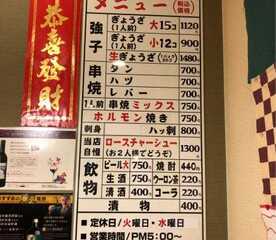 恭喜發財
メニュー 税込価格
強子 ぎょうざ(1人前) 大15コ 1120
ぎょうざ(1人前) 小12コ 900
生ぎょうざ 1480
串焼 タン 700
ハツ 700
レバー 700
1人前 串焼ミックス 750
ホルモン焼き 750
刺身 ハッ刺 800
当店自慢 ロースチャーシュー(お2人様でどうぞ) 1300
飲物 ビール大 750 焼酎 440
生酒 750 ウーロン茶 220
清酒 400 コーラ 220
漬物 400
■定休日/火曜日・水曜日
■営業時間/PM5:00~